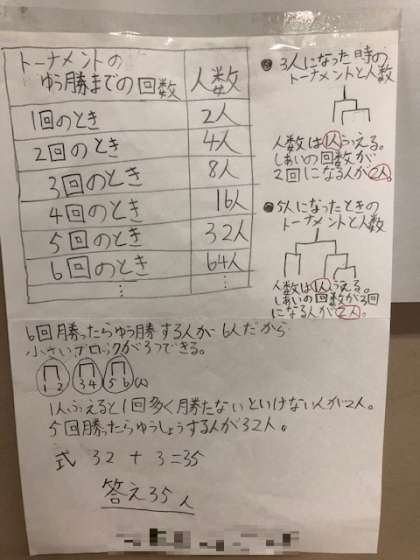 トーナメントの
ゆう勝までの回数 人数
1回のとき 2人
2回のとき 4人
3回のとき 8人
4回のとき 16人
5回のとき 32人
6回のとき 64人
⋮ ⋮
3人になった時の
トーナメントと人数
人数は1人ふえる。
しあいの回数が
2回になる人が2人。
5人になったときの
トーナメントと人数
人数は1人ふえる。
しあいの回数が3回
になる人が2人。
6回勝ったらゆう勝する人が6人だから
小さいブロックが3つできる。
1 2 3 4 5 6 (人)
1人ふえると1回多く勝たないといけない人が2人。
5回勝ったらゆうしょうする人が32人。
式 32 + 3=35
答え35人